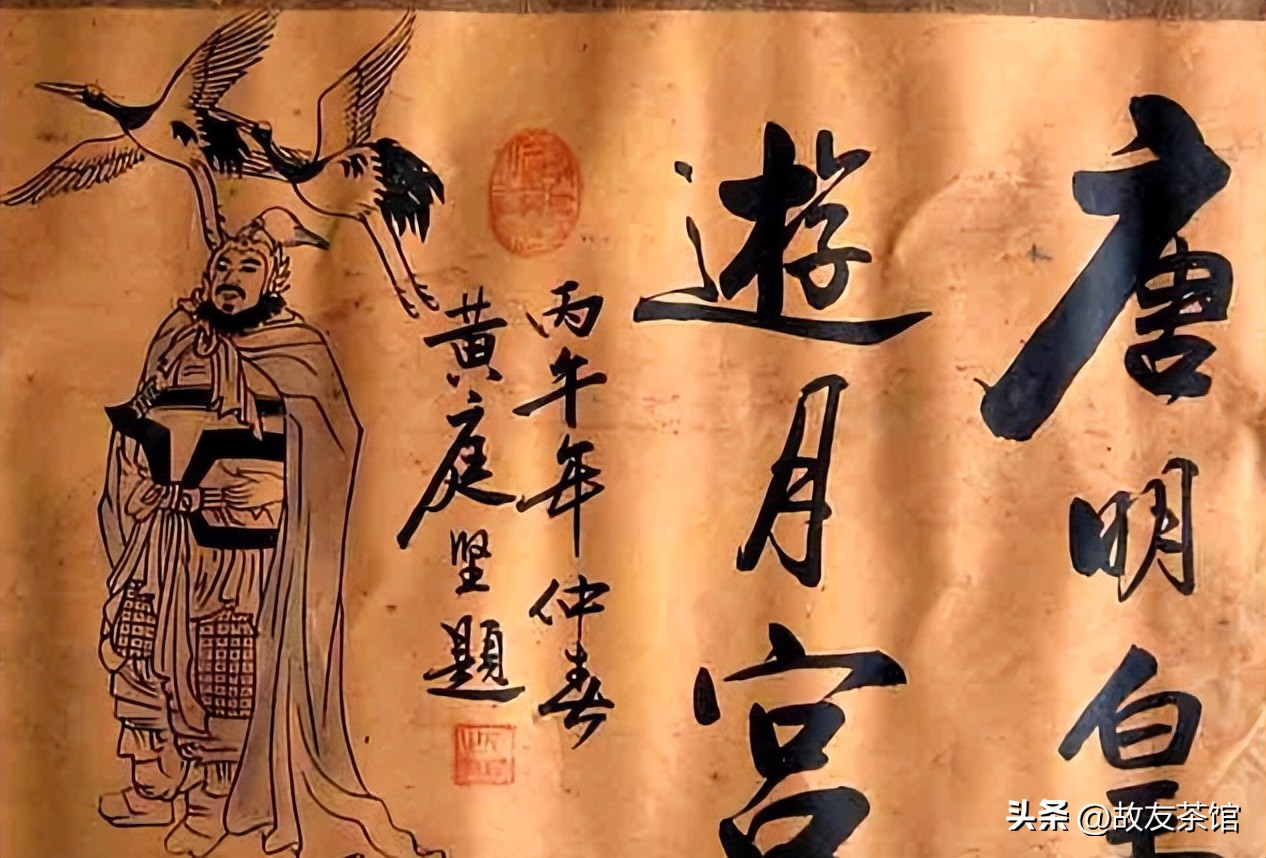 唐明皇
遊月宫
丙午年仲春
黄庭坚題
头条 @故友茶馆